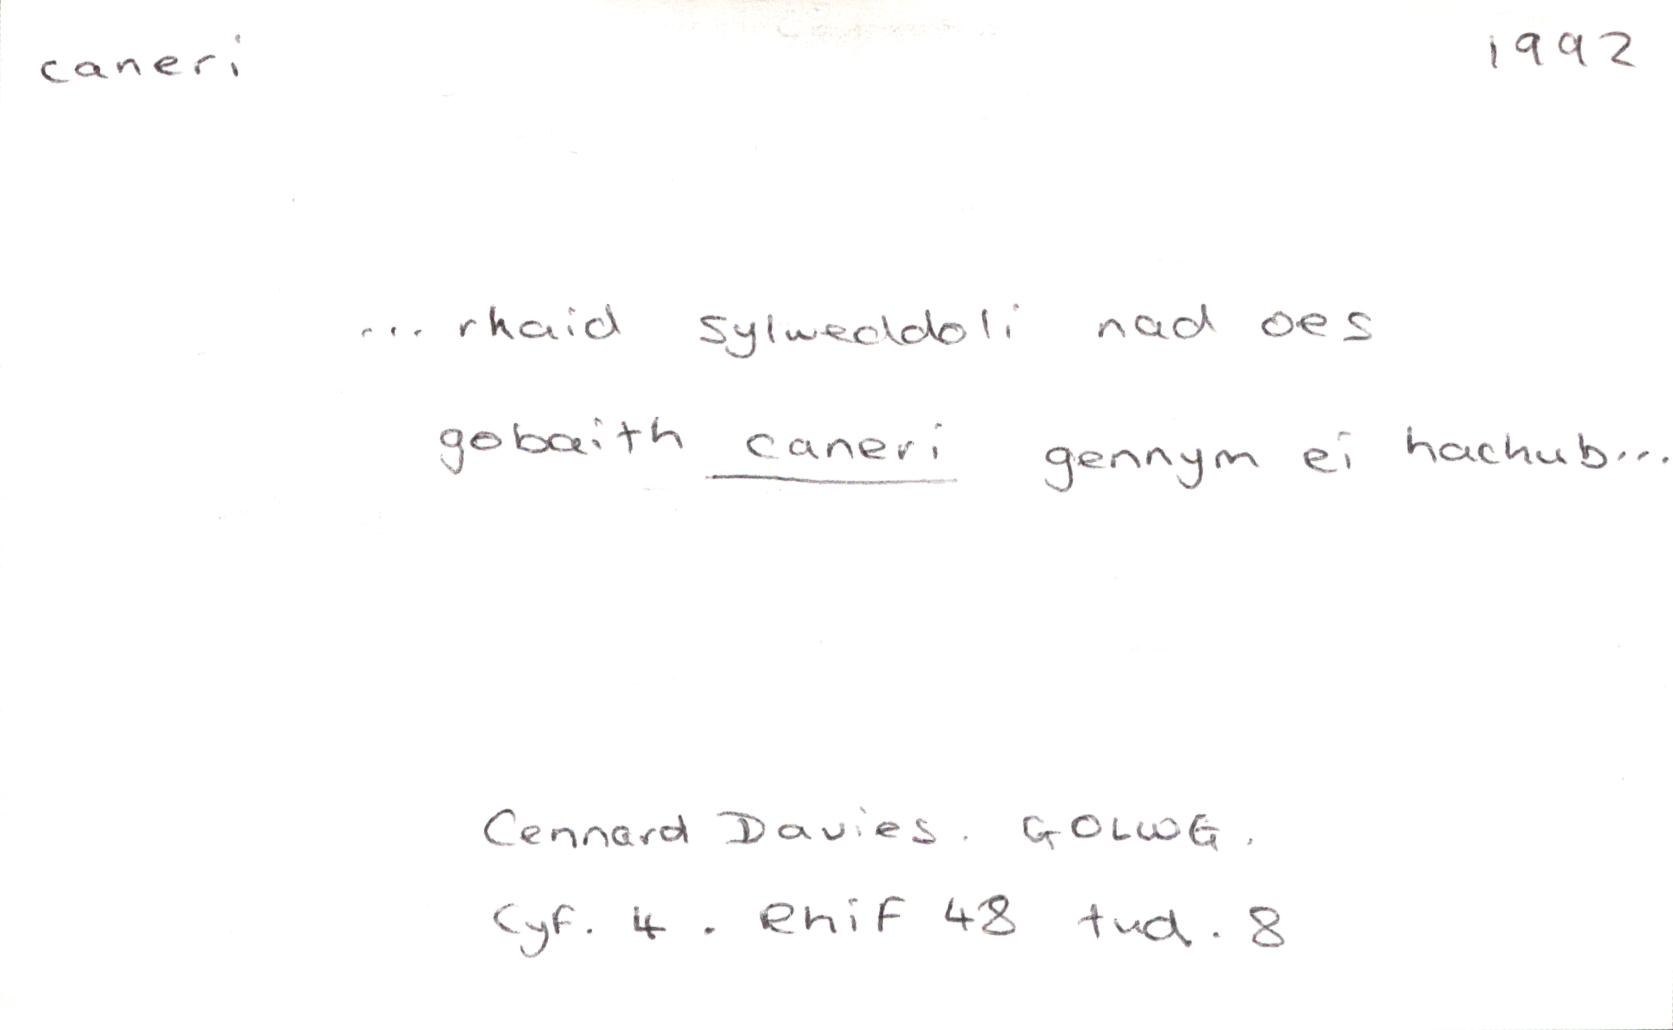 caneri 1992
... rhaid sylweddoli nad oes
gobaith caneri gennym ei hachub...
Cennard Davies. GOLWG.
Cyf. 4. Rhif 48 tud. 8